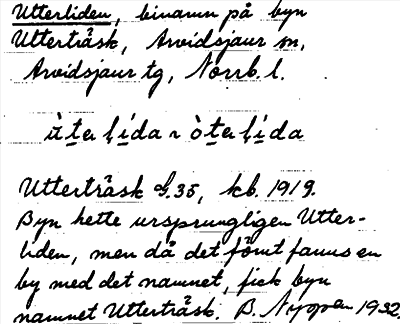 Utterliden, binamn på byn
Utterträsk, Arvidsjaur sn,
Arvidsjaur tg, Norrb. l.
ùt̲erḷí̲da ~ òt̲erḷí̲da
Utterträsk G. 35, kb. 1919.
Byn hette ursprungligen Utter-
liden, men då det förut fanns en
by med det namnet, fick byn
namnet Utterträsk. B. 1932.